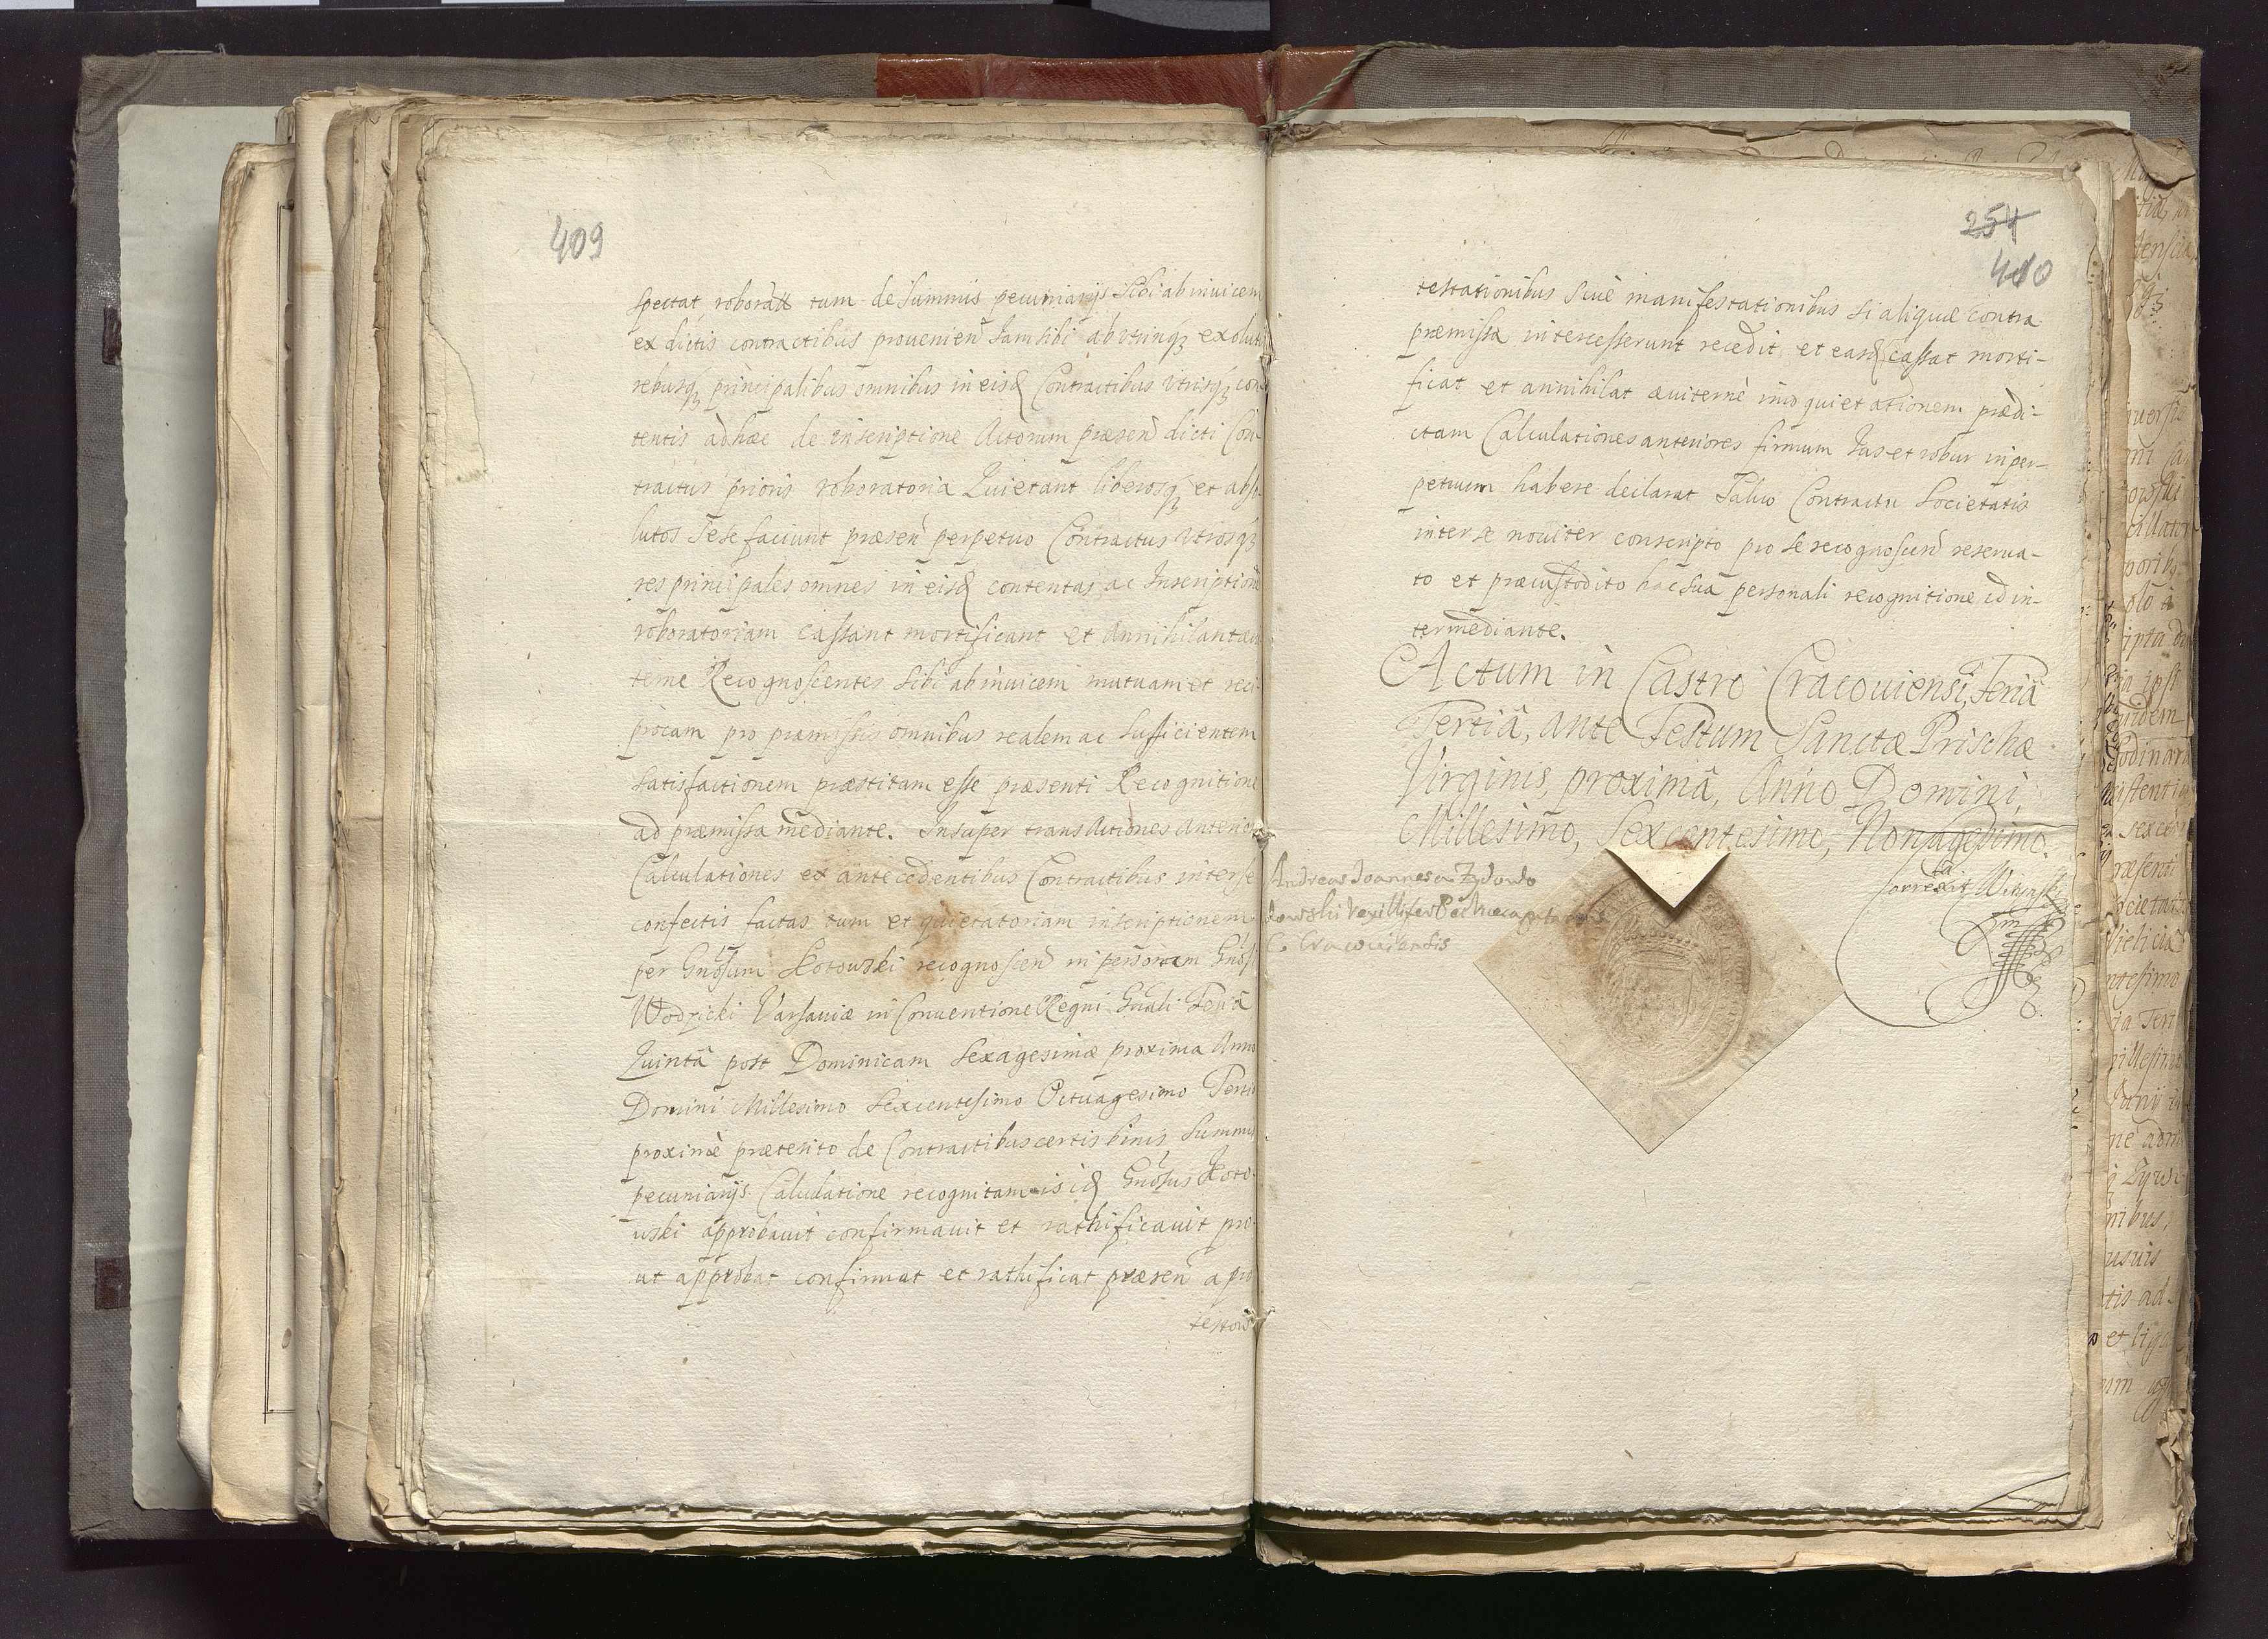 409
spectat, roborat tum de Summis pecuniarijs Sibi ab inuicem
ex dictis contractibus prouenien iam sibi ab utrinq3 exoluti
rebusq3 principalibus omnibus in eisd Contractibus utrisq3 con
tentis ad hæc de inscriptione Actorum præsen dicti Con
tractus prioris roboratoria Quietant liberosq3 et abso
lutos Sese faciunt præsen perpetuo Contractus utrosq3
res principales omnes in eisd contentas ac Inscription
roboratoriam cassant mortificant et Annihilant æui
terne Recognoscentes Sibi ab inuicem mutuam et reci
procam pro præmissis omnibus realem ac Sufficientem
Satisfactionem præstitam esse præsenti Recognitione
ad præmissa mediante. Insuper transActiones Anterior
Calculationes ex antecedentibus Contractibus inter se
confectis factas tum et quietatoriam inscriptionem
per Gnosum Kotowski recognoscen in personam Gnosi
Wodzicki Varsauiæ in Conuentione Regni Gnali Feria
Quintâ post Dominicam Sexagesimæ proxima Anno
Domini Millesimo Sexcentesimo Octuagesimo Tertio
proximè præterito de Contractibus certis binis Summis
pecuniarijs Calculatione recognitam is id Gnosus Koto
wski approbauit confirmauit et rathificauit pro
ut approbat confirmat et rathificat præsen a pro
testatio
254
410
testationibus Siuè manifestationibus Si aliquæ contra
præmissa intercesserunt recedit et easd cassat morti-
ficat et annihilat æuiternè imo quietationem prædi-
ctam Calculationes anteriores firmum Ius et robur in per-
petuum habere declarat Saluo Contractu Societatis
inter se nouiter conscripto pro se recognoscen reserua-
to et præcustodito hac Sua personali recognitione id in-
termediante.
Actum in Castro Cracouiensi, Feriâ
Tertiâ, Ante Festum Sanctæ Prischæ
Virginis, proximâ, Anno Domini,
Millesimo, Sexcentesimo, Nonagesimo.
Andreas Joannes a Zydowo
dowski Vexillifer
C. Cracouiensis
Correxit
mp